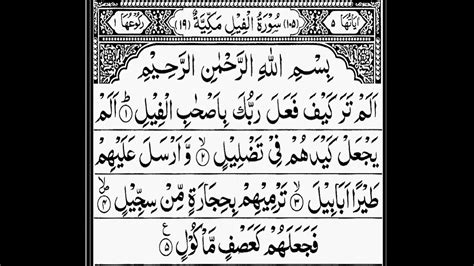 اٰیَاتُهَا ۵ (۱۰۵) سُوْرَةُ الْفِیْلِ مَكِّیَّةٌ (۱۹) رُكُوْعُهَا ۱
بِسْمِ اللّٰهِ الرَّحْمٰنِ الرَّحِیْمِ
اَلَمْ تَرَ كَیْفَ فَعَلَ رَبُّكَ بِاَصْحٰبِ الْفِیْلِؕ ۱ اَلَمْ
یَجْعَلْ كَیْدَهُمْ فِیْ تَضْلِیْلٍۙ ۲ وَّ اَرْسَلَ عَلَیْهِمْ
طَیْرًا اَبَابِیْلَۙ ۳ تَرْمِیْهِمْ بِحِجَارَةٍ مِّنْ سِجِّیْلٍۙ ۴
فَجَعَلَهُمْ كَعَصْفٍ مَّاْكُوْلٍ ۵ ع